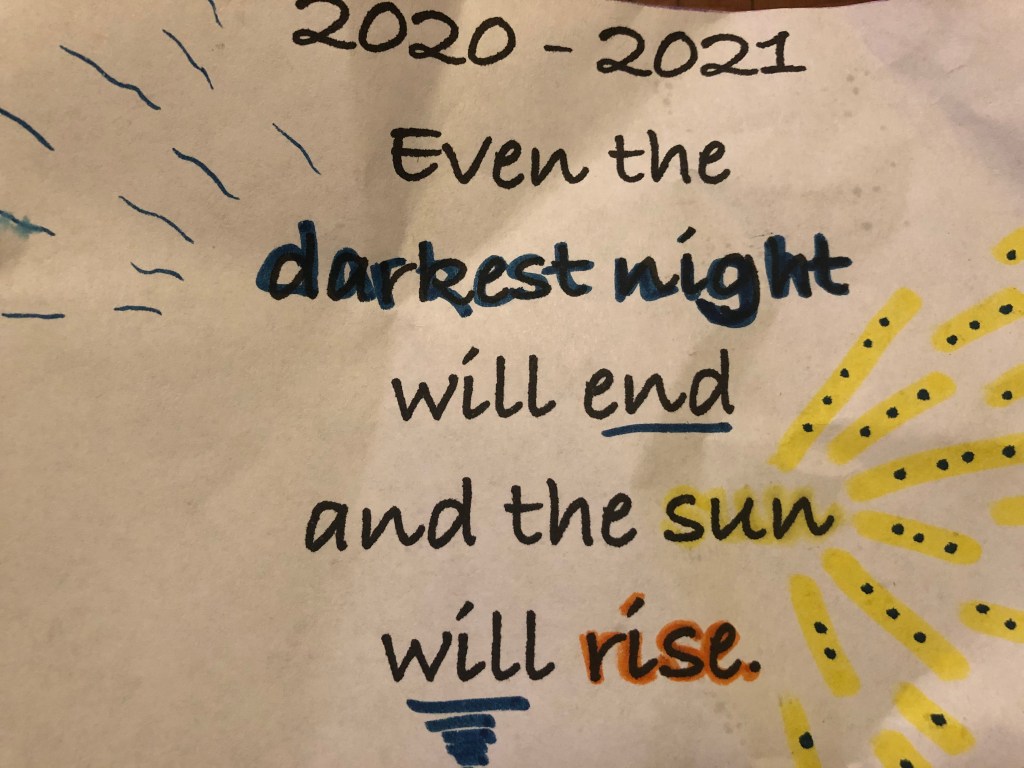 2020 - 2021
Even the
darkest night
will end
and the sun
will rise.